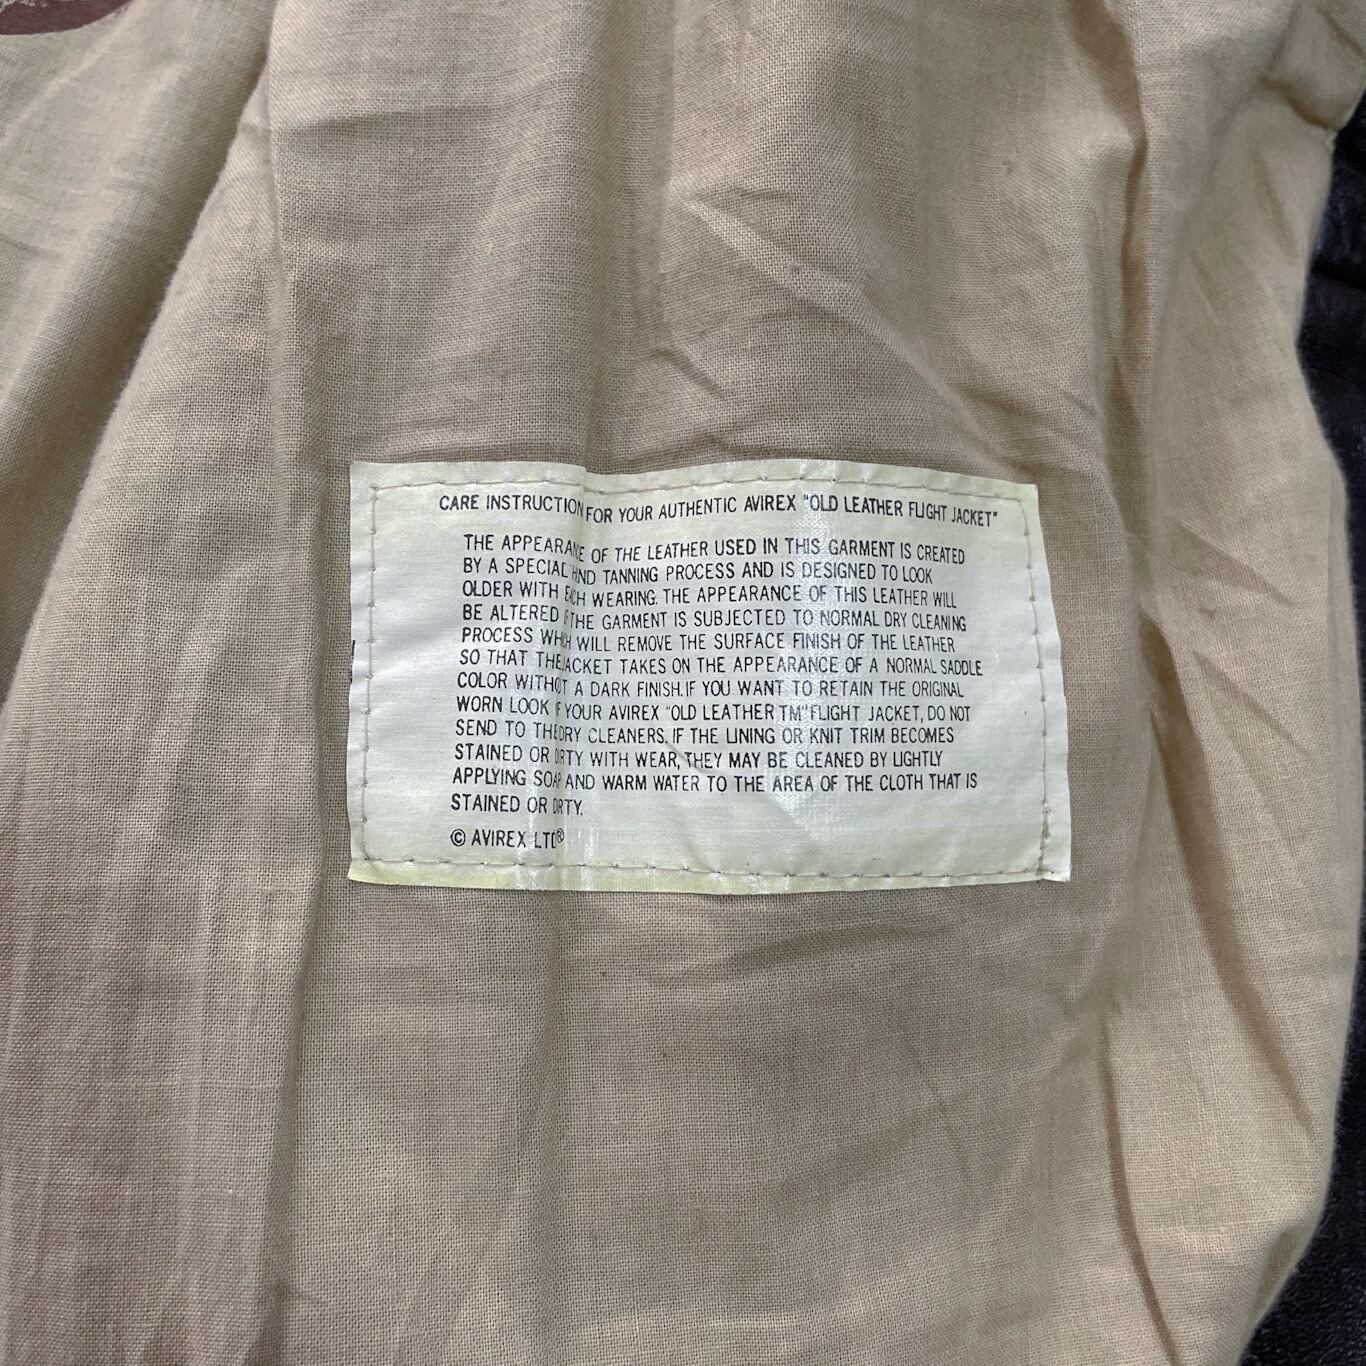 CARE INSTRUCTION FOR YOUR AUTHENTIC AVIREX "OLD LEATHER FLIGHT JACKET"
THE APPEARANCE OF THE LEATHER USED IN THIS GARMENT IS CREATED
BY A SPECIAL HAND TANNING PROCESS AND IS DESIGNED TO LOOK
OLDER WITH EACH WEARING. THE APPEARANCE OF THIS LEATHER WILL
BE ALTERED IF THE GARMENT IS SUBJECTED TO NORMAL DRY CLEANING
PROCESS WHICH WILL REMOVE THE SURFACE FINISH OF THE LEATHER
SO THAT THE JACKET TAKES ON THE APPEARANCE OF A NORMAL SADDLE
COLOR WITHOUT A DARK FINISH. IF YOU WANT TO RETAIN THE ORIGINAL
WORN LOOK OF YOUR AVIREX "OLD LEATHER TM" FLIGHT JACKET, DO NOT
SEND TO THE DRY CLEANERS. IF THE LINING OR KNIT TRIM BECOMES
STAINED OR DIRTY WITH WEAR, THEY MAY BE CLEANED BY LIGHTLY
APPLYING SOAP AND WARM WATER TO THE AREA OF THE CLOTH THAT IS
STAINED OR DIRTY.
© AVIREX LTD®